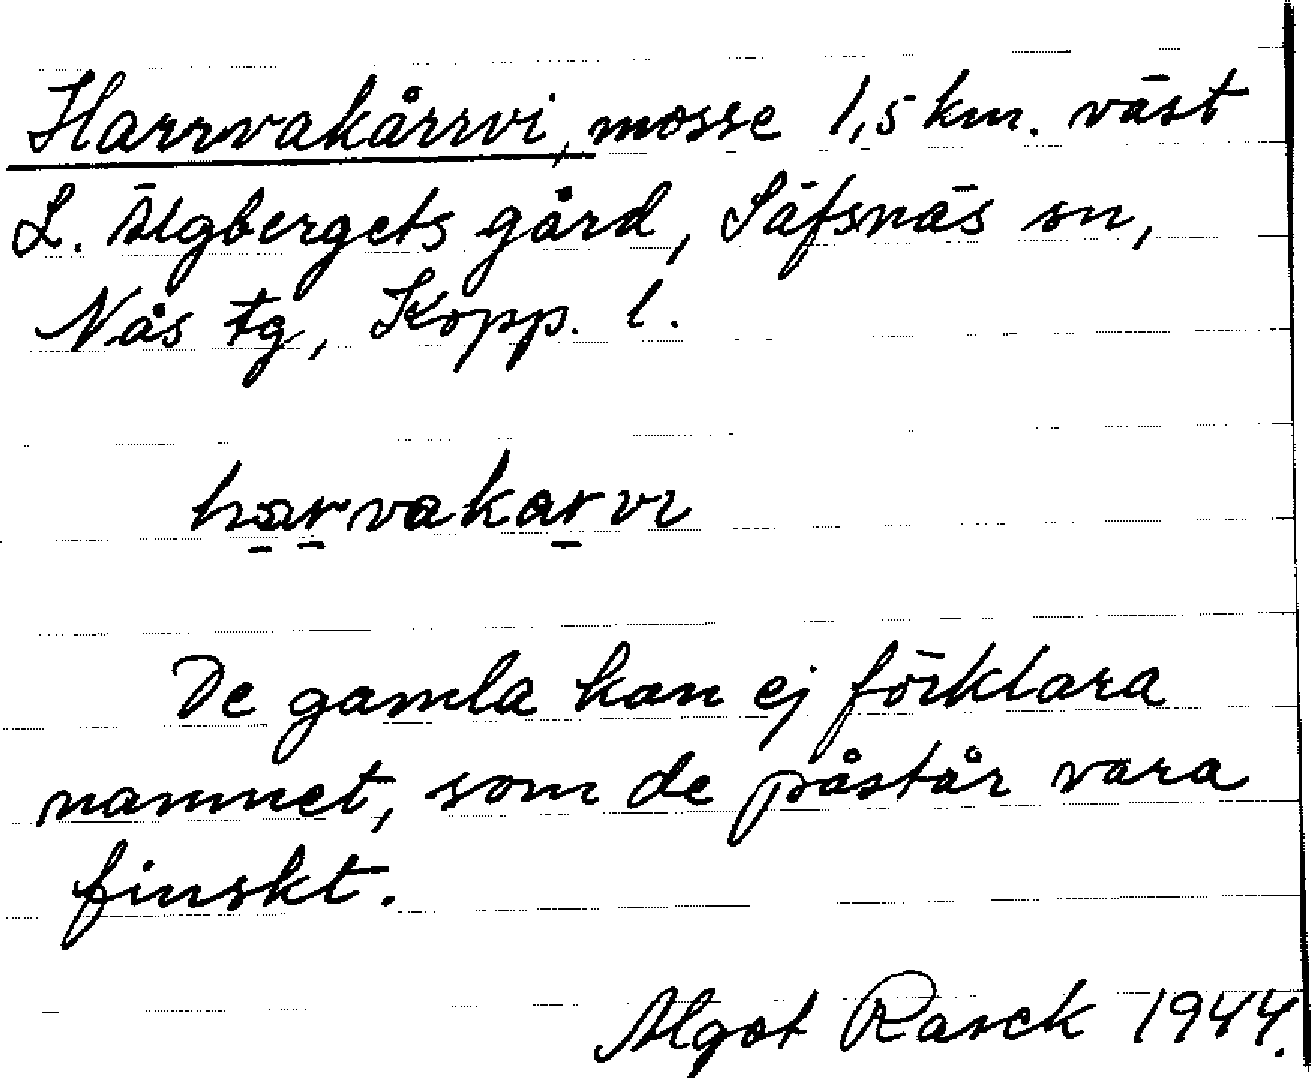 Harrvakårrvi, mosse 1,5 km. väst
L. Älgbergets gård, Säfsnäs sn,
Nås tg, Kopp. l.
harvakarvi
De gamla kan ej förklara
namnet, som de påstår vara
finskt.
Algot Rasck 1944.